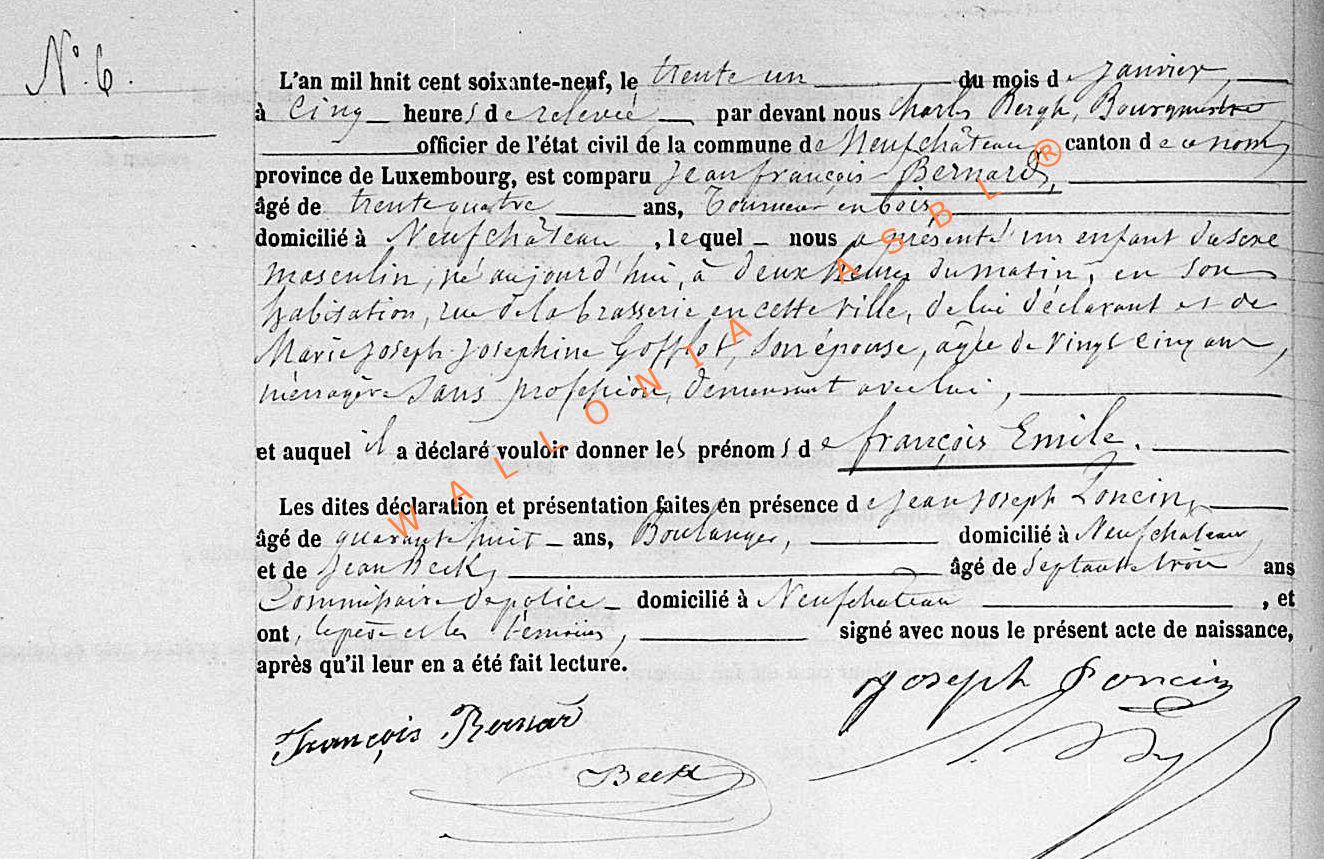 N° 6.
L'an mil hnit cent soixante-neuf, le trente un du mois de Janvier,
à Cinq heures de relevée, par devant nous Charles Bergh, Bourgmestre
officier de l'état civil de la commune de Neufchâteau, canton de ce nom,
province de Luxembourg, est comparu Jean françois Bernard,
âgé de trente quatre ans, Tourneur en bois,
domicilié à Neufchâteau, lequel nous a présenté un enfant du sexe
masculin, né aujourd'hui, à deux heures du matin, en son
habitation, rue de la brasserie en cette ville, de lui déclarant et de
Marie Joseph Josephine Gofflot, son épouse, agée de vingt cinq ans,
ménagère sans profession, demeurant avec lui,
et auquel il a déclaré vouloir donner les prénoms de françois Emile.
Les dites déclaration et présentation faites en présence de Jean Joseph Poncin,
âgé de quarante huit ans, Boulanger, domicilié à Neufchateau,
et de Jean Beck, âgé de Septante trois ans
Commissaire de police domicilié à Neufchateau, et
ont, le père et les témoins, signé avec nous le présent acte de naissance,
après qu'il leur en a été fait lecture.
Joseph Poncin
François Bernard
Beck
WALLONIA ASBL ®